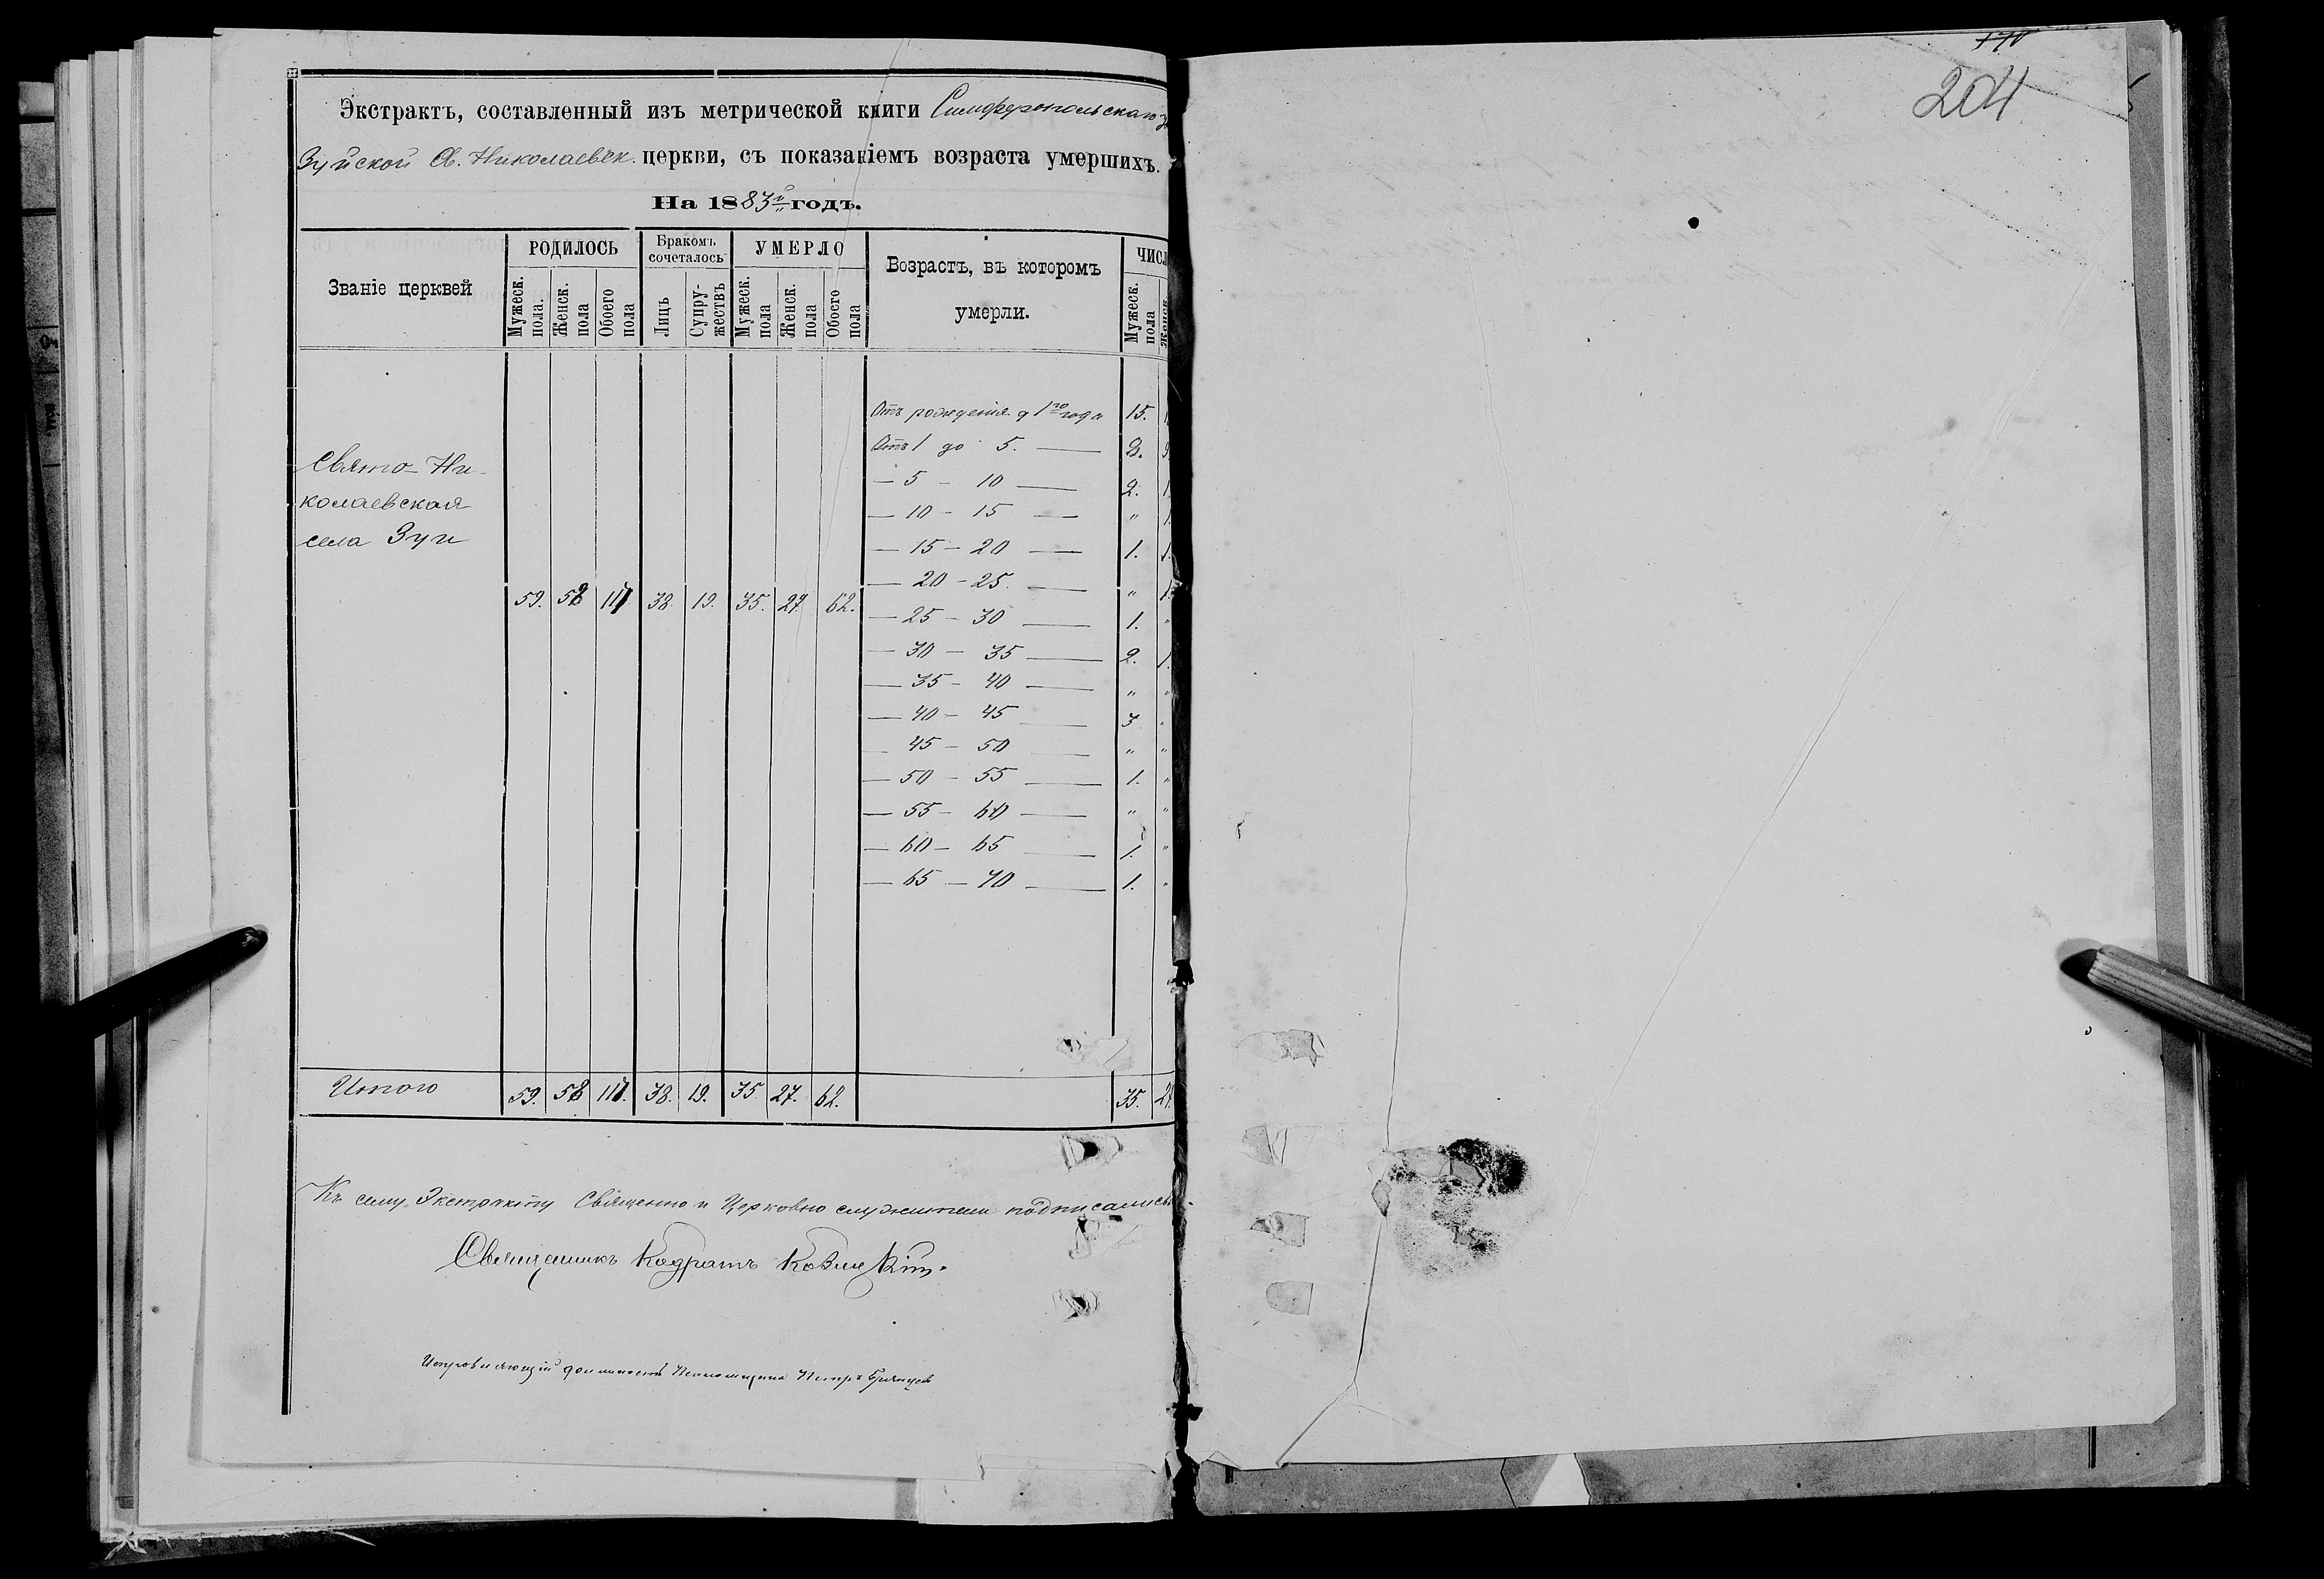 170
204
Экстрактъ, составленный изъ метрической книги Симферопольскаго
Зуйской Св. Николаевск. церкви, съ показаніемъ возраста умершихъ.
На 1883й годъ.
Званіе церквей
РОДИЛОСЬ
Мужеск. пола.
Женск. пола
Обоего пола
Бракомъ сочеталось
Лицъ
Супру-жествъ
УМЕРЛО
Мужеск. пола
Женск. пола
Обоего пола
Возрастъ, въ котором
умерли.
ЧИСЛ
Мужеск. пола
Женск.
Свято-Ни-
колаевская
села Зуи
59. 58 117 38. 19. 35. 27. 62.
Отъ рожденія д 1го года 15.
Отъ 1 до 5. —
— 5 — 10 — 2. 1
— 10 — 15 — " 1.
— 15 — 20 — 1. 1.
— 20 — 25. — " 1.
— 25 — 30 — 1. "
— 30 — 35 — 2. 1.
— 35 — 40 — " "
— 40 — 45 — 3 "
— 45 — 50 — " "
— 50 — 55 — 1. "
— 55 — 60 — " "
— 60 — 65 — 1. "
— 65 — 70 — 1. "
Итого 59. 58 117. 38. 19. 35. 27. 62. 35. 27.
Къ сему Экстракту Священно и Церковно служители подписались
Священникъ Кодратъ
Исправляющій должность Псаломщика Петръ